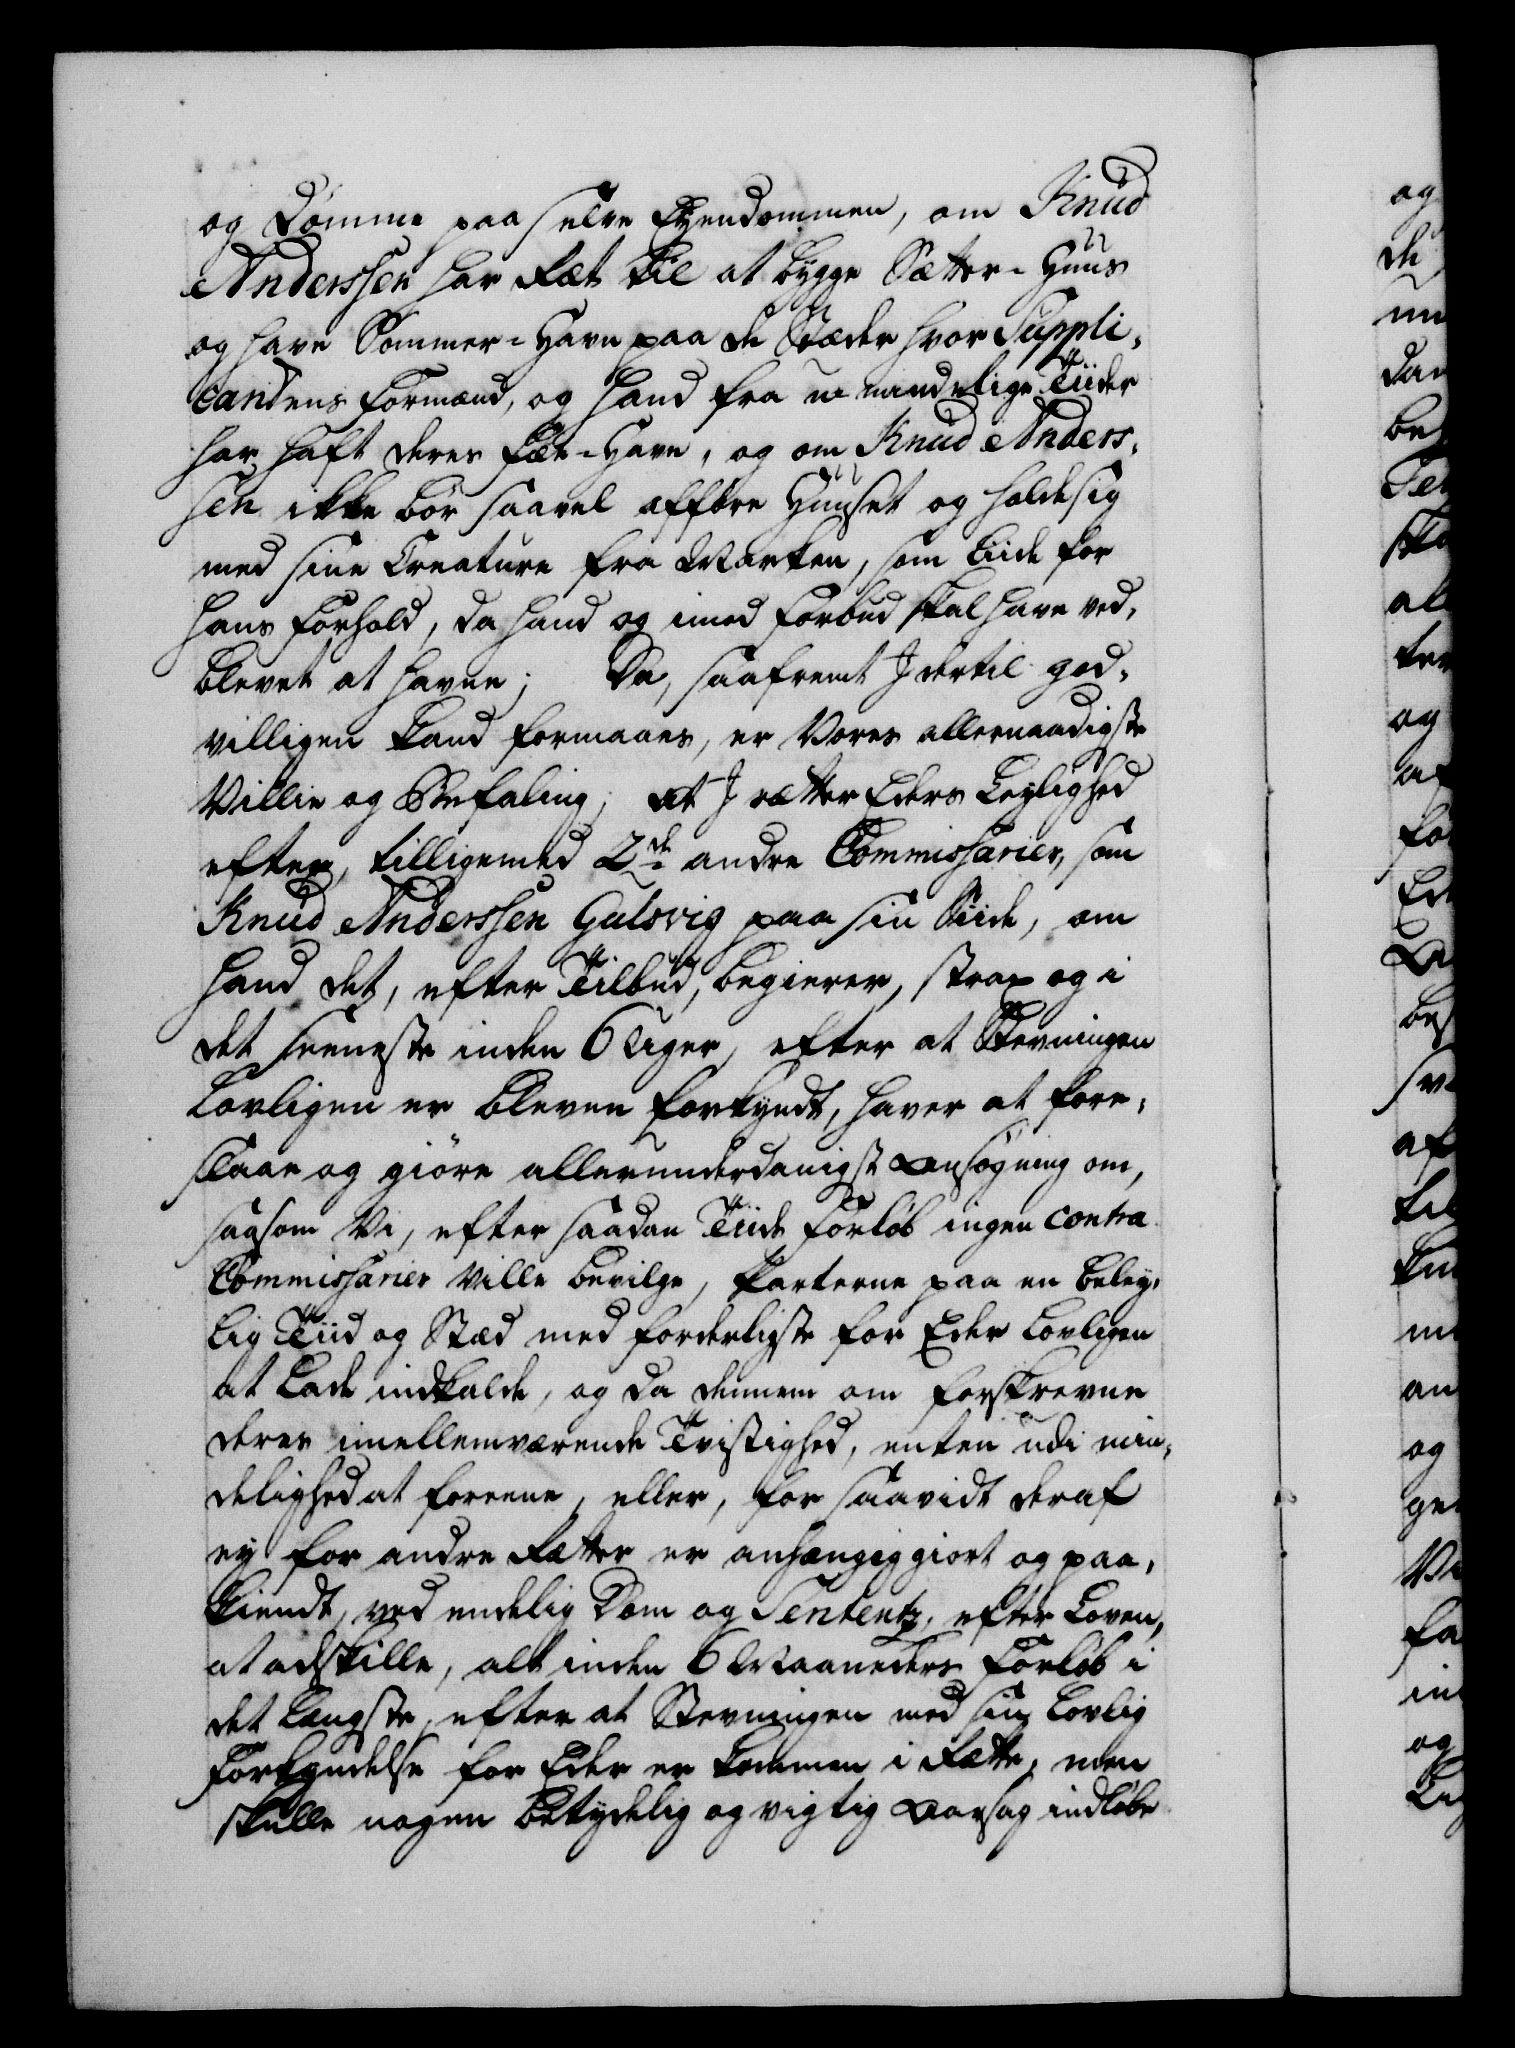 og Dømme paa selve Eyendommen, om Knud
Anderssen har Ræt til at bygge Sætter-Huus
og have Sommer-Havn paa de Stæder hvor Suppli-
cantens Formænd, og hand fra u-mindelige Tiider
har haft deres Fæe-Havn, og om Knud Anders-
sen ikke bör saavel afföre Huuset og holde sig
med sine Creature fra Marken, som liide for
hans Forhold, da hand og imod Forbud skal have ved-
blevet at havne; Da, saafremt I dertil god-
villigen kand formaaes, er Vores allernaadigste
Villie og Befaling; at I retter Eders Leylighed
efter, tilligemed 2de andre Commissarier, som
Knud Anderssen Gulsvig paa sin Siide, om
hand det, efter Tilbud, begierer, strax og i
det seeneste inden 6 Uger, efter at Stevningen
Lovligen er bleven forkyndt, haver at fore-
slaae og giöre allerunderdanigst Ansögning om,
saasom Vi, efter saadan Tiids Forløb ingen contra
Commissarier ville bevilge, Parterne paa en beley-
lig Tiid og Stæd med forderligste for Eder Lovligen
at lade indkalde, og da dennem om forskrevne
deres imellemværende Tvistighed, enten udi min-
delighed at foreene, eller, for saavidt deraf
ey for andre Rætter er anhængiggiort og paa-
kiendt, ved endelig Dom og Sententz, efter Loven,
at adskille, alt inden 6 Maaneders Forløb i
det længste, efter at Stevningen med sin Lovlig
Forkyndelse for Eder er kommen i Rætte, men
skulle nogen betydelig og vigtig Aarsag indløbe